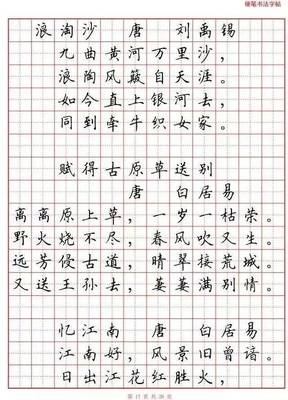 硬笔书法字帖
浪淘沙 唐 刘禹锡
九曲黄河万里沙，
浪淘风簸自天涯。
如今直上银河去，
同到牵牛织女家。
赋得古原草送别
唐 白居易
离离原上草，一岁一枯荣。
野火烧不尽，春风吹又生。
远芳侵古道，晴翠接荒城。
又送王孙去，萋萋满别情。
忆江南 唐 白居易
江南好，风景旧曾谙。
日出江花红胜火，